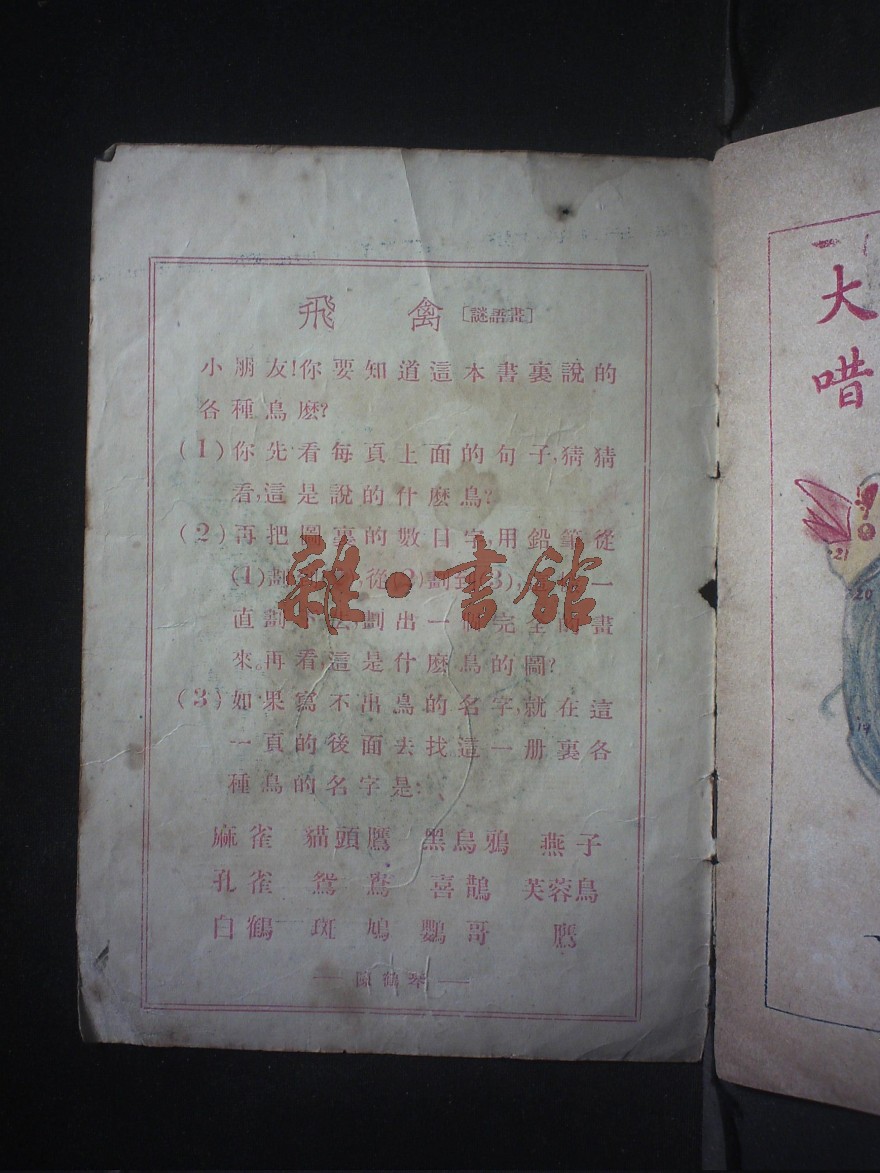 飛禽［謎語畫］
小朋友!你要知道這本書裏說的
各種鳥麽?
(1)你先看每頁上面的句子,猜猜
看,這是說的什麽鳥?
(2)再把圖裏的數目字,用鉛筆從
(1)劃到 從(2)劃到(3), 一
直劃 劃出一 完全 畫
來。再看,這是什麽鳥的圖?
(3)如果寫不出鳥的名字,就在這
一頁的後面去找這一册裏各
種鳥的名字是:
麻雀 貓頭鷹 黑烏鴉 燕子
孔雀 鴛鴦 喜鵲 芙蓉鳥
白鶴 斑鳩 鸚哥 鷹
— 陳鶴琴 —
雜·書館
大
唶
21
20
19